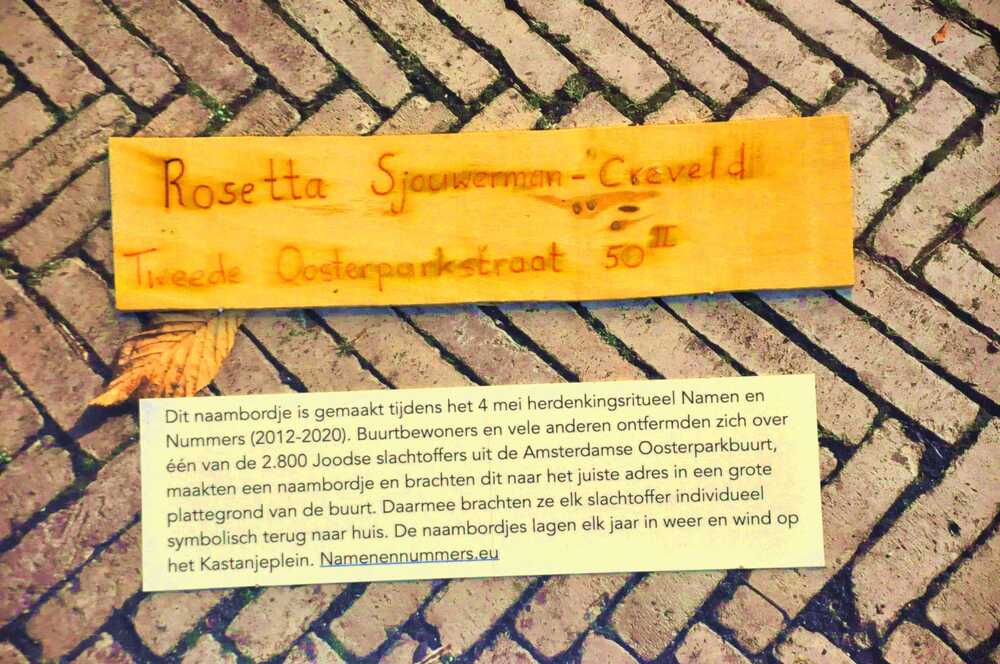 Rosetta Sjouwerman-Creveld
Tweede Oosterparkstraat 50 II
Dit naambordje is gemaakt tijdens het 4 mei herdenkingsritueel Namen en
Nummers (2012-2020). Buurtbewoners en vele anderen ontfermden zich over
één van de 2.800 Joodse slachtoffers uit de Amsterdamse Oosterparkbuurt,
maakten een naambordje en brachten dit naar het juiste adres in een grote
plattegrond van de buurt. Daarmee brachten ze elk slachtoffer individueel
symbolisch terug naar huis. De naambordjes lagen elk jaar in weer en wind op
het Kastanjeplein. Namenennummers.eu